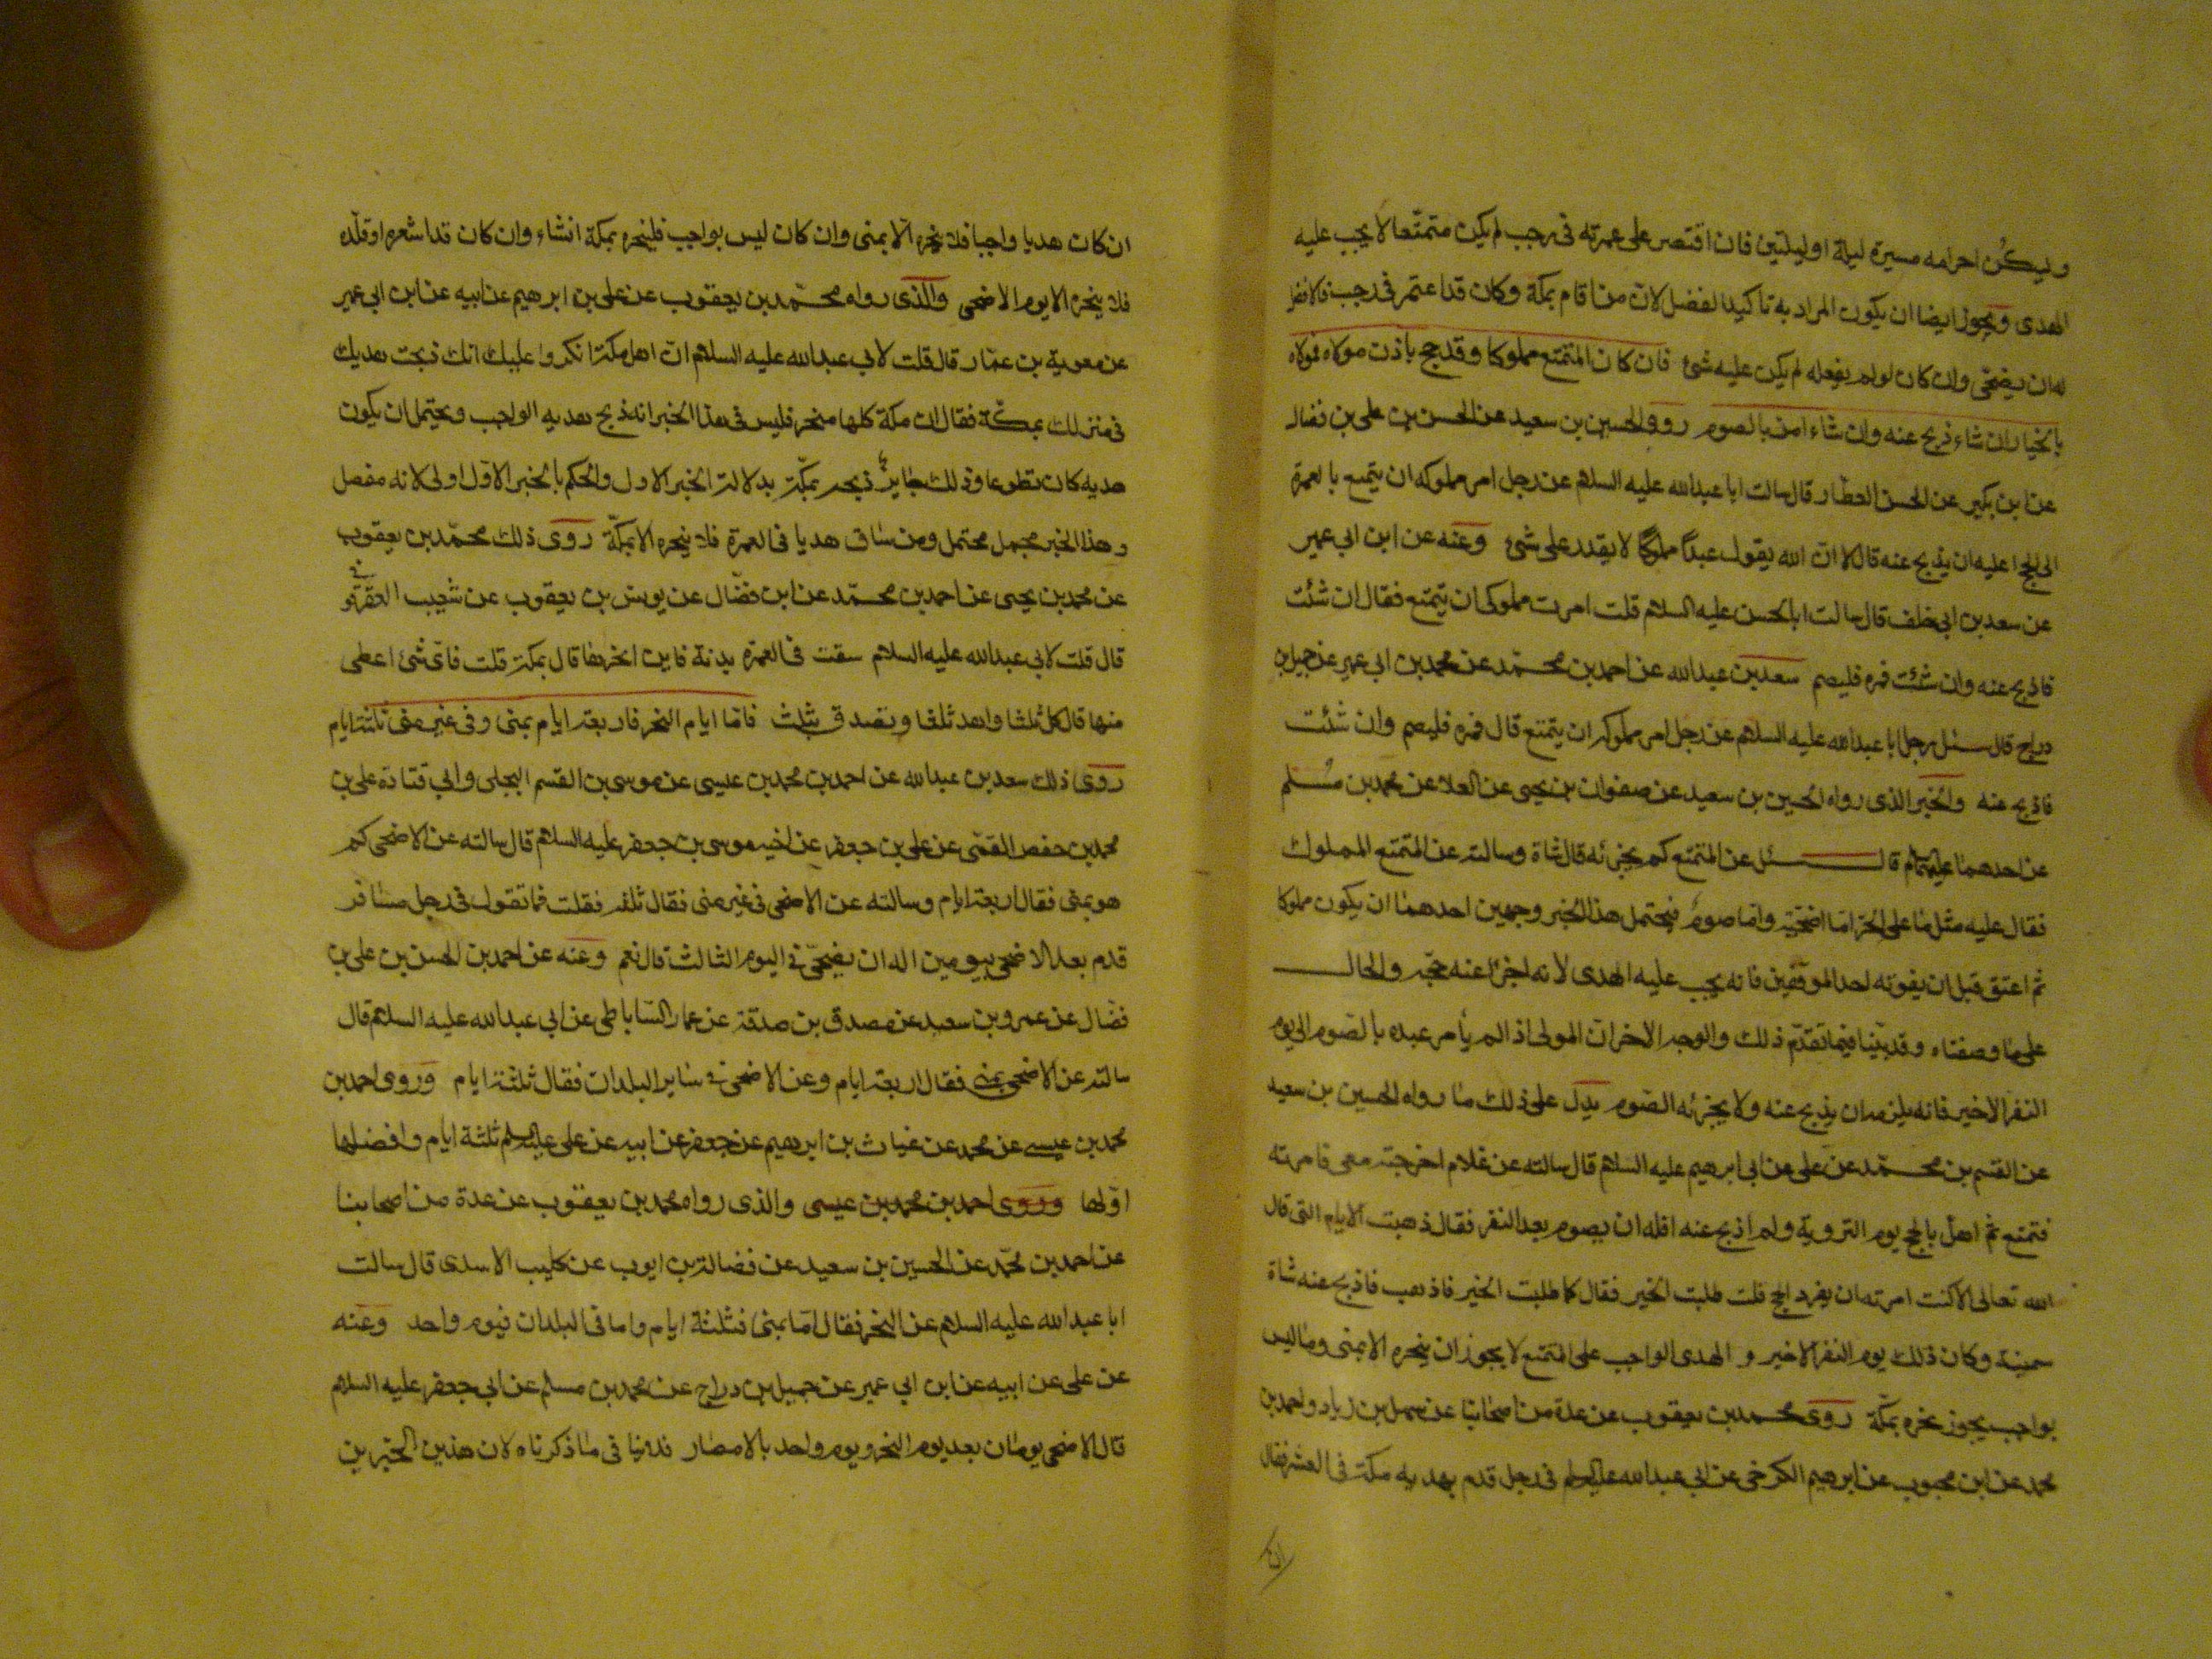 وليكن احرامه مسيرة ليلة او ليلتين فان اقتصر على عمرته في رجب لم يكن متمتعا لا يجب عليه
الهدى ويجوز ايضا ان يكون المراد به تاكيد الفضل لان من اقام بمكة وكان قد اعتمر في رجب فالافضل
له ان يضحى وان كان لو لم يفعله لم يكن عليه شئ فان كان المتمتع مملوكا وقد حج باذن مولاه فمولاه
بالخيار ان شاء ذبح عنه وان شاء امن بالصوم روى الحسين بن سعيد عن الحسن بن على بن فضال
عن ابن بكير عن الحسن العطار قال سالت ابا عبدالله عليه السلام عن رجل امر مملوكه ان يتمتع بالعمرة
الى الحج اعليه ان يذبح عنه قال لا ان الله يقول عبدا مملوكا لا يقدر على شئ وعنه عن ابن ابي عمير
عن سعد بن ابى خلف قال سالت ابا الحسن عليه السلام قلت امرت مملوكى ان يتمتع فقال ان شئت
فاذبح عنه وان شئت فمره فليصم سعد بن عبدالله عن احمد بن محمد عن محمد بن ابى عمير عن جميل بن
دراج قال سئل رجل ابا عبدالله عليه السلام عن رجل امر مملوكه ان يتمتع قال فمره فليصم وان شئت
فاذبح عنه والخبر الذى رواه الحسين بن سعيد عن صفوان بن يحيى عن العلا عن محمد بن مسلم
عن احدهما عليهما السلام قال سئل عن المتمتع كم يجزئه قال شاة وسالته عن المتمتع المملوك
فقال عليه مثل ما على الحر اما اضحية واما صوم فيحتمل هذا الخبر وجهين احدهما ان يكون مملوكا
ثم اعتق قبل ان يفوته احد الموقفين فانه يجب عليه الهدى لانه اجزا عنه حجه والحال
على ما وصفناه وقد بينا فيما تقدم ذلك والوجه الاخر ان المولى اذا لم يأمر عبده بالصوم الى يوم
النفر الاخير فانه يلزمه ان يذبح عنه ولا يجزئه الصوم يدل على ذلك ما رواه الحسين بن سعيد
عن القسم بن محمد عن على عن ابى ابرهيم عليه السلام قال سالته عن غلام اخرجته معى فامرته
فتمتع ثم اهل بالحج يوم التروية ولم اذبح عنه افله ان يصوم بعد النفر فقال ذهبت الايام التى قال
الله تعالى الا كنت امرته ان يفرد الحج قلت طلبت الخير فقال كما طلبت الخير فاذهب فاذبح عنه شاة
سمينة وكان ذلك يوم النفر الاخير و الهدى الواجب على المتمتع لا يجوز ان ينحره الا بمنى وما ليس
بواجب يجوز نحره بمكة روى محمد بن يعقوب عن عدة من اصحابنا عن سهل بن زياد واحمد بن
محمد عن ابن محبوب عن ابرهيم الكرخى عن ابى عبدالله عليه السلام في رجل قدم بهديه مكة في العشر فقال
ان كان هديا واجبا فلا ينحره الا بمنى وان كان ليس بواجب فلينحره بمكة انشاء وان كان قد اشعره او قلده
فلا ينحره الا يوم الاضحى والذى رواه محمد بن يعقوب عن على بن ابرهيم عن ابيه عن ابن ابى عمير
عن معوية بن عمار قال قلت لابي عبدالله عليه السلام ان اهل مكة انكروا عليك انك ذبحت هديك
في منزلك بمكة فقال ان مكة كلها منحر فليس في هذا الخبر انه ذبح هديه الواجب ويحتمل ان يكون
هديه كان تطوعا وذلك جايز ذبحه بمكة بدلالة الخبر الاول والحكم بالخبر الاول اولى لانه مفصل
وهذا الخبر مجمل محتمل ومن ساق هديا في العمرة فلا ينحره الا بمكة روى ذلك محمد بن يعقوب
عن محمد بن يحيى عن احمد بن محمد عن ابن فضال عن يونس بن يعقوب عن شعيب العقرقوفى
قال قلت لابى عبدالله عليه السلام سقت في العمرة بدنة فاين انحرها قال بمكة قلت فاى شئ اعطى
منها قال كل ثلثا واهد ثلثا وتصدق بثلث فاما ايام النحر فاربعة ايام بمنى وفى غير منى ثلثة ايام
روى ذلك سعد بن عبدالله عن احمد بن محمد بن عيسى عن موسى بن القسم البجلى وابى قتادة على بن
محمد بن حفص القمى عن على بن جعفر عن اخيه موسى بن جعفر عليه السلام قال سالته عن الاضحى كم
هو بمنى فقال اربعة ايام وسالته عن الاضحى في غير منى فقال ثلثه فقلت فما تقول في رجل مسافر
قدم بعد الاضحى بيومين اله ان يضحى في اليوم الثالث قال نعم وعنه عن احمد بن الحسن بن على بن
فضال عن عمرو بن سعيد عن مصدق بن صدقة عن عمار الساباطى عن ابى عبدالله عليه السلام قال
سالته عن الاضحى بمنى فقال اربعة ايام وعن الاضحى في ساير البلدان فقال ثلثة ايام وروى احمد بن
محمد بن عيسى عن محمد عن غياث بن ابرهيم عن جعفر عن ابيه عن على عليه السلام ثلثة ايام وافضلها
اولها وروى احمد بن محمد بن عيسى والذى رواه محمد بن يعقوب عن عدة من اصحابنا
عن احمد بن محمد عن الحسين بن سعيد عن فضالة بن ايوب عن كليب الاسدى قال سالت
ابا عبدالله عليه السلام عن النحر فقال اما بمنى فثلثة ايام واما في البلدان فيوم واحد وعنه
عن على عن ابيه عن ابن ابي عمير عن جميل بن دراج عن محمد بن مسلم عن ابى جعفر عليه السلام
قال الاضحى يومان بعد يوم النحر ويوم واحد بالامصار فلا ينافى ما ذكرناه لان هذين الخبرين